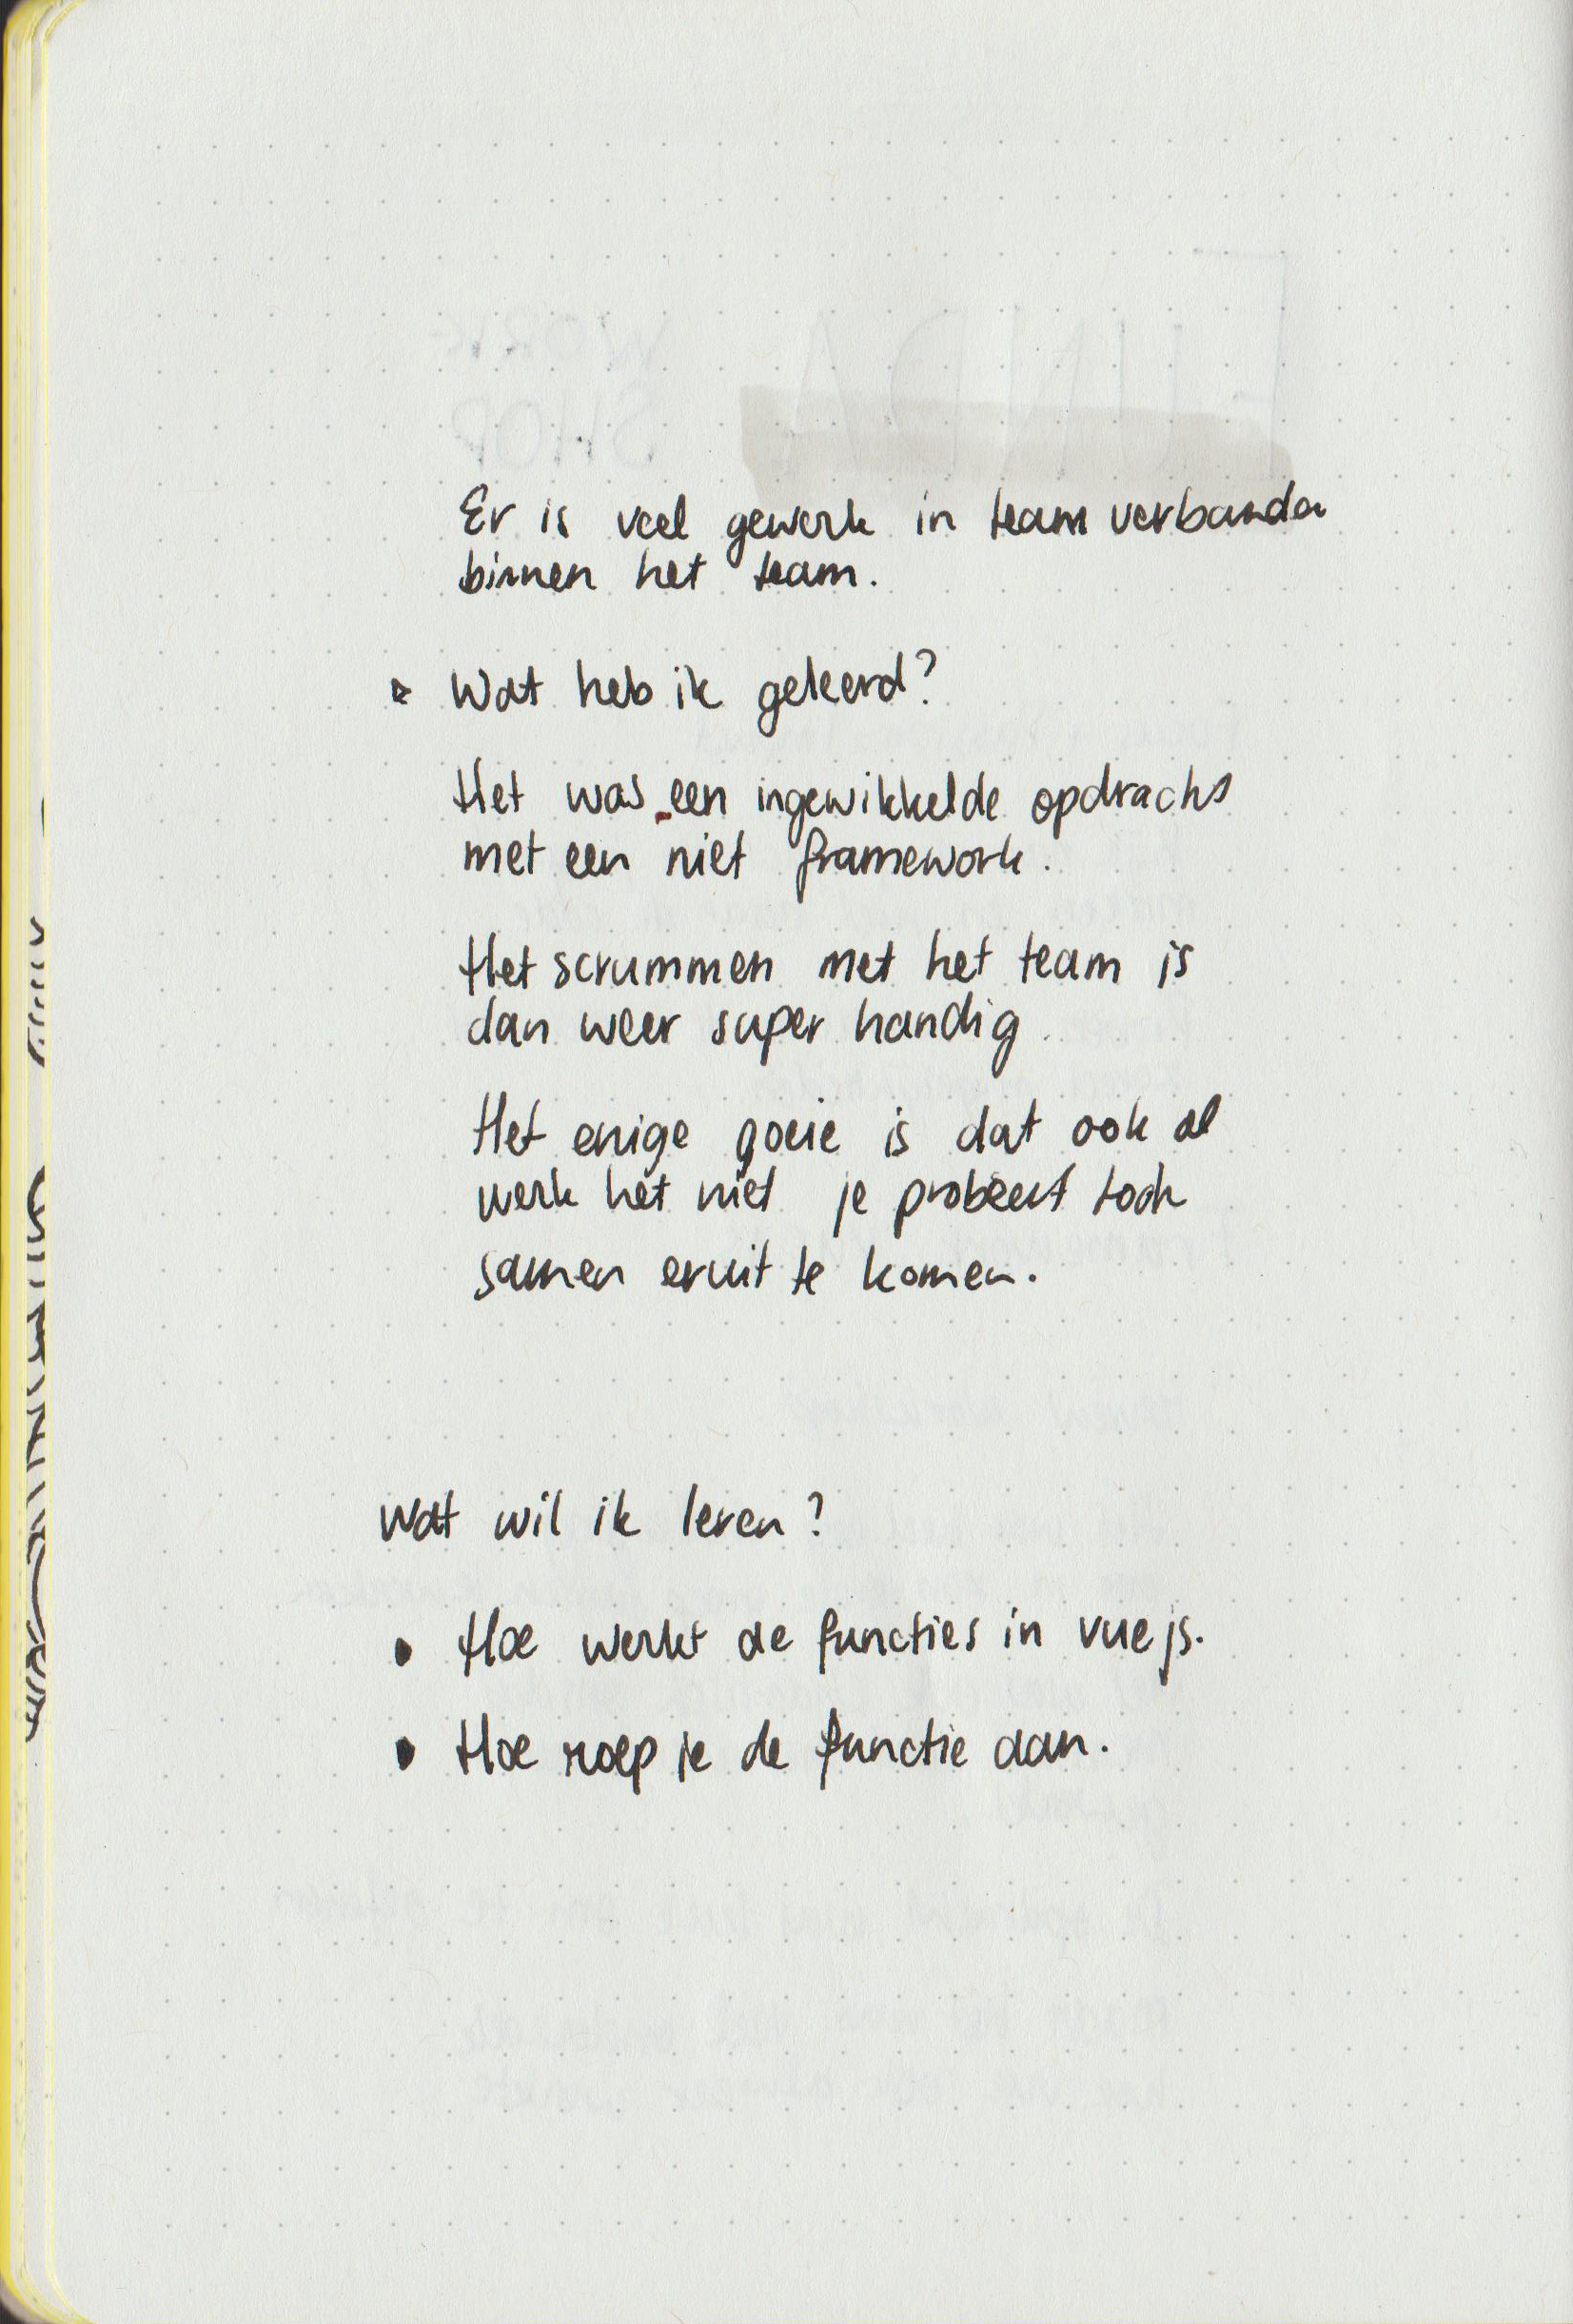 Er is veel gewerk in team verbanden
binnen het team.
Wat heb ik geleerd?
Het was een ingewikkelde opdracht
met een niet framework.
Het scrummen met het team is
dan weer super handig.
Het enige goeie is dat ook al
werk het niet je probeert toch
samen eruit te komen.
Wat wil ik leren?
• Hoe werkt de functies in vue js.
• Hoe roep je de functie aan.